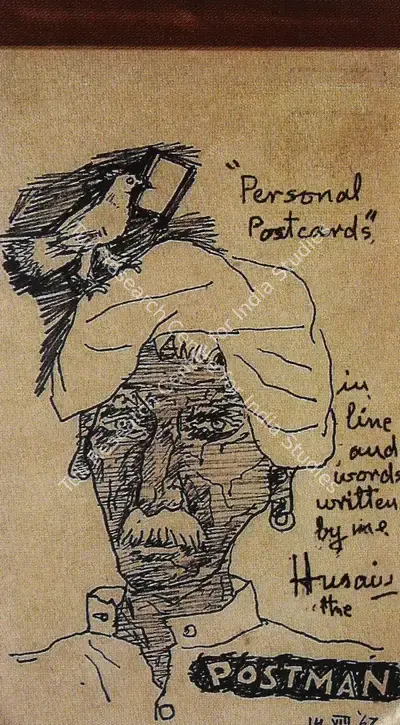 "Personal
Postcards"
in
line
and
words
written
by me
Husain
the
POSTMAN
The Research Centre for India Studies
The Research Centre for India Studies